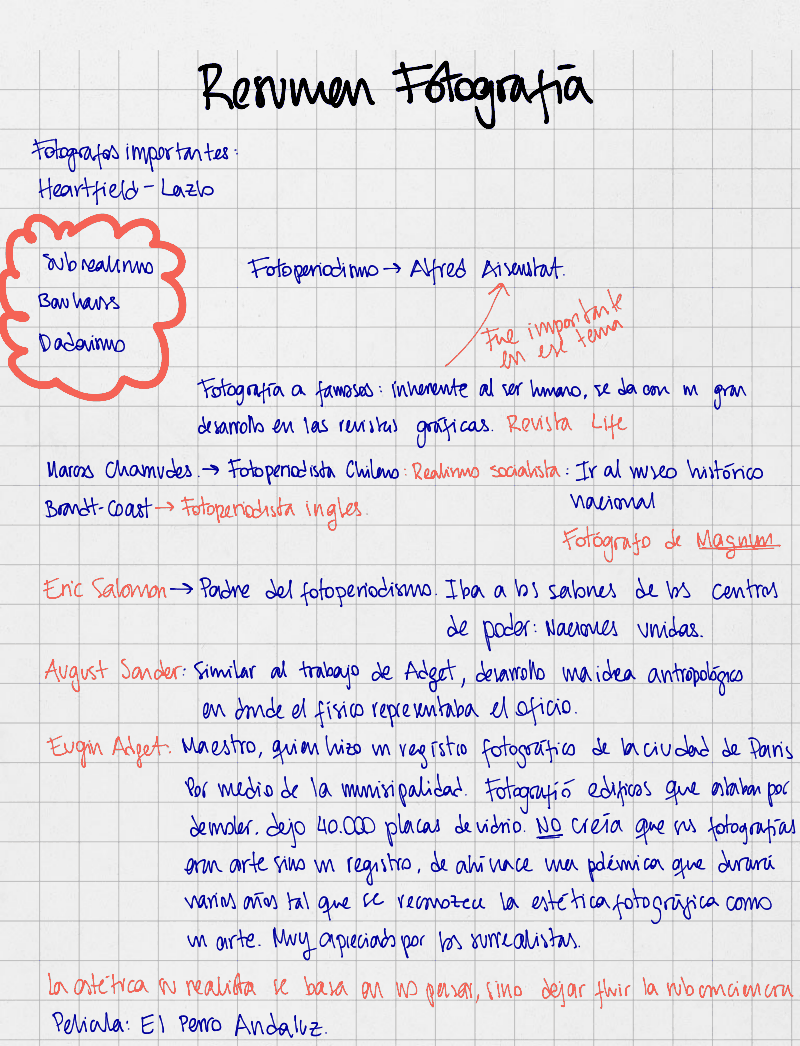 Resumen Fotografía
Fotografos importantes:
Heartfield - Lazlo
Subrealismo
Bauhauss
Dadaismo
Fotoperiodismo → Alfred Aisenstat.
Fue importante
en ese tema
Fotografía a famosos: inherente al ser humano, se da con un gran
desarrollo en las revistas gráficas. Revista Life
Marcos Chamudes. → Fotoperiodista Chileno: Realismo socialista: Ir al museo histórico
nacional
Brandt-Coast → Fotoperiodista ingles.
Fotógrafo de Magnum
Eric Salomon → Padre del fotoperiodismo. Iba a los salones de los centros
de poder: Naciones unidas.
August Sander: Similar al trabajo de Adget, desarrollo una idea antropológica
en donde el físico representaba el oficio.
Eugin Adget: Maestro, quien hizo un registro fotográfico de la ciudad de Paris
Por medio de la municipalidad. Fotografió edificos que estaban por
demoler. dejo 40.000 placas de vidrio. NO creía que sus fotografías
eran arte sino un registro, de ahí nace una polémica que durará
varios años tal que se reconozca la estética fotográfica como
un arte. Muy apreciado por los surrealistas.
La estética su realista se basa en no pensar, sino dejar fluir la subconciencia
Pelicula: El Perro Andaluz.